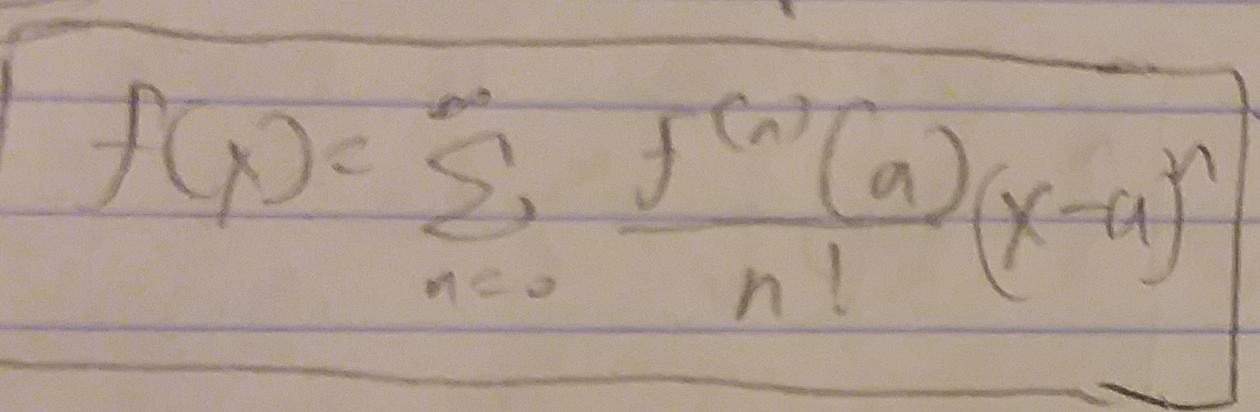 f(x) = ∑_{n=0}^{∞} \frac{f^{(n)}(a)}{n!} (x-a)^n